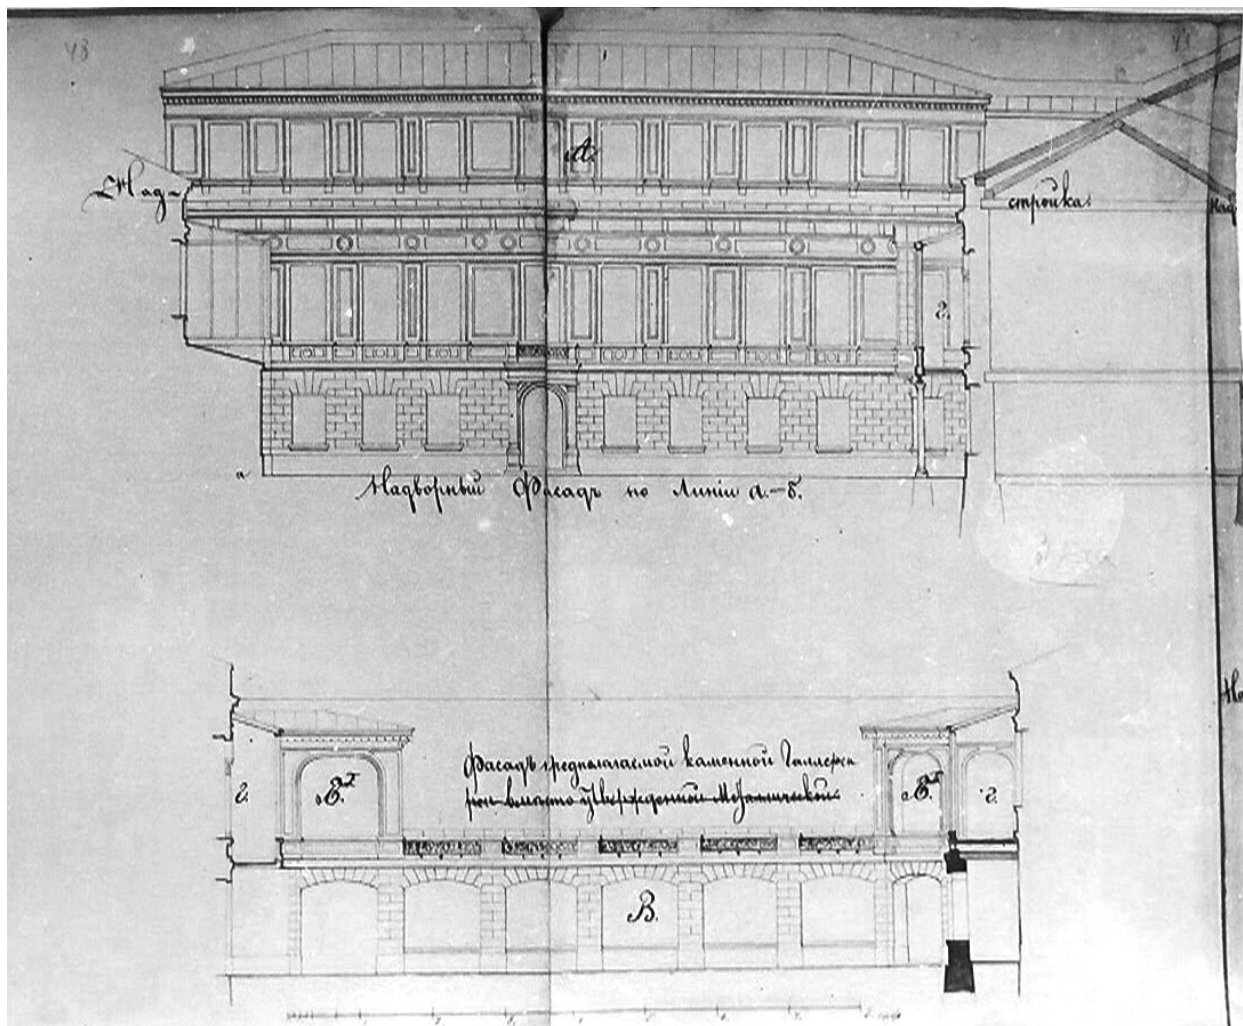 43
43
А.
Над-
стройка.
над
г.
а
Надворный Фасадъ по Линіи а.-б.
Фасадъ предполагаемой каменной Галлереи
вместо утвержденной Металлической
г.
г.
В.